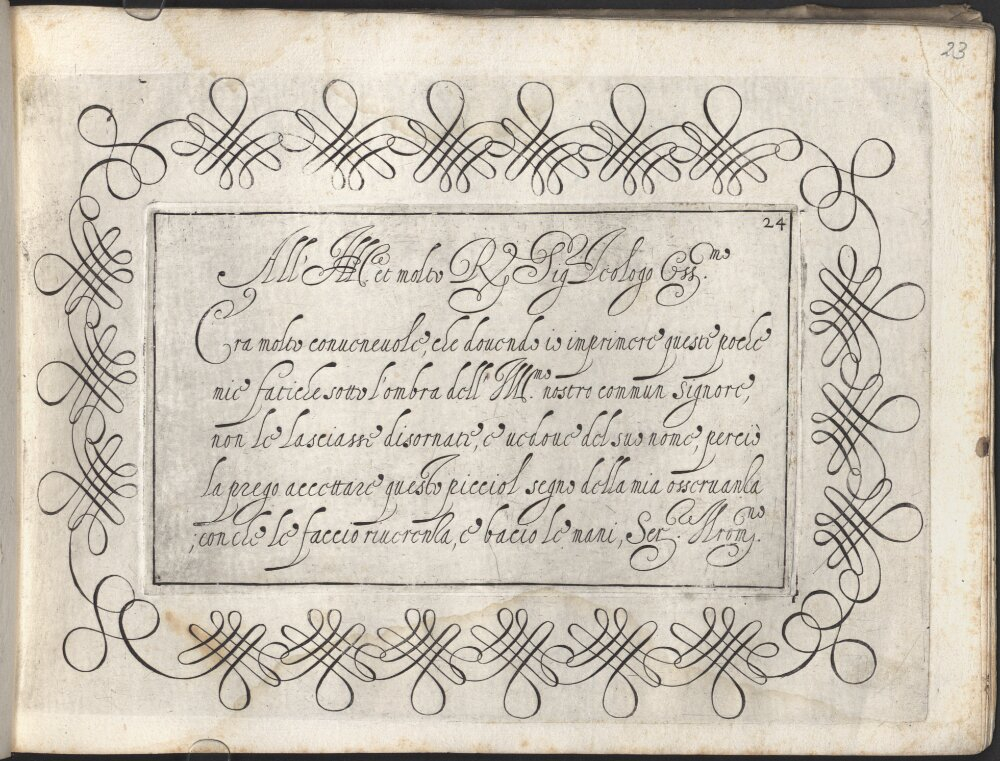 23
24
All' Ill. et molto R. Sig. Teologo Oss.mo
Era molto conueneuole, che douendo io imprimere queste poche
mie fatiche sotto l'ombra dell' Ill.mo nostro commun Signore,
non le lasciasse disornate, e uedoue del suo nome, perciò
la prego accettare questo picciol segno della mia osseruanza
, con che le faccio riuerenza, e bacio le mani, Ser.